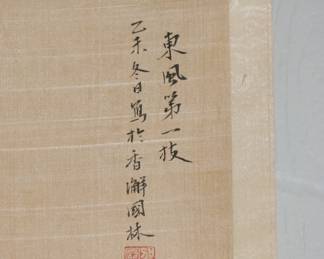 東風第一枝
乙未冬日寫於香澥國林